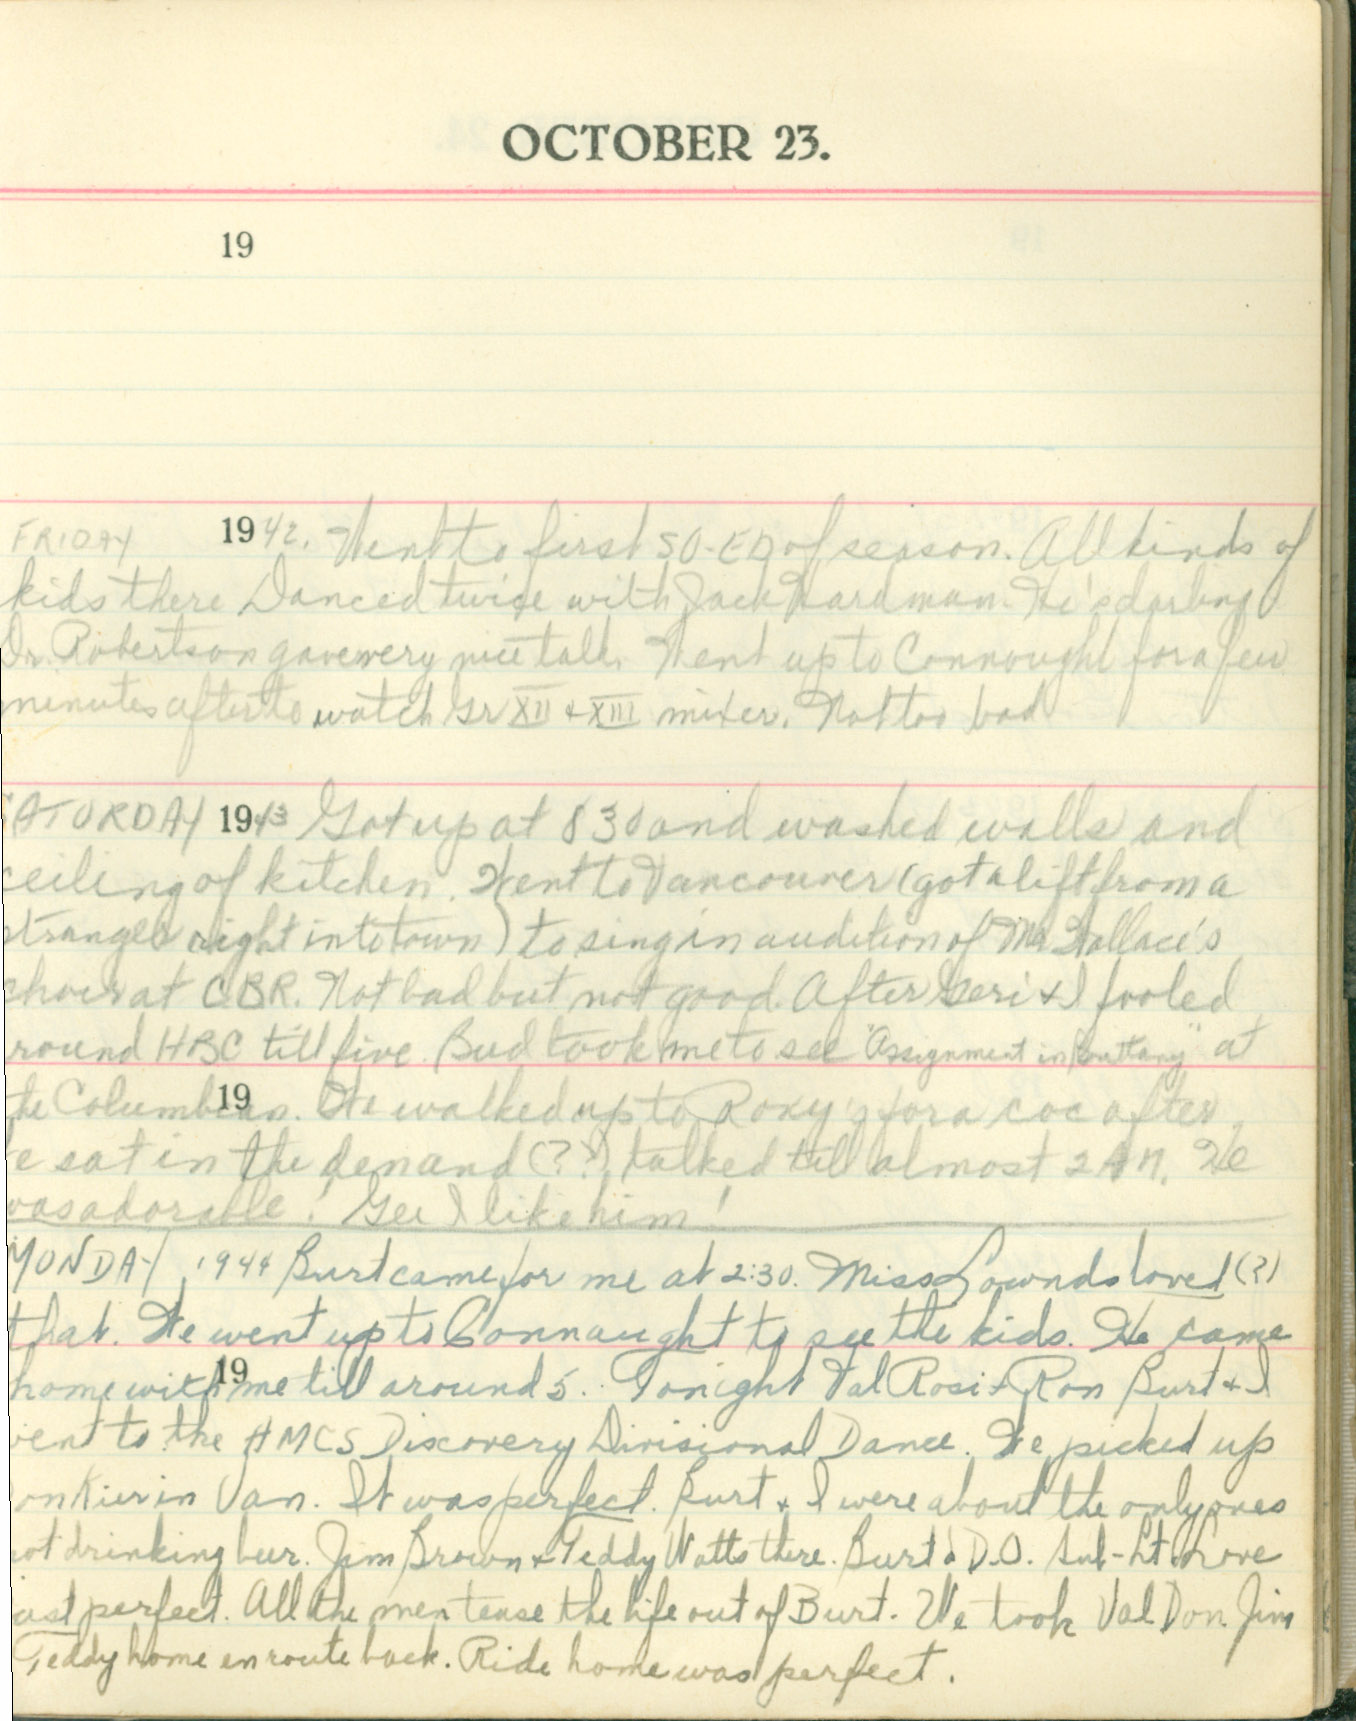 OCTOBER 23.
19
FRIDAY 1942. Went to first SO-ED of season. All kinds of
kids there Danced twice with Jack Hardman. He's darling
Dr. Robertson gave very nice talk. Went up to Connought for a few
minutes after to watch Gr XII & XIII mixer. Not too bad
SATURDAY 1943 Got up at 830 and washed walls and
ceiling of kitchen. Went to Vancouver (got a lift from a
stranger right into town) to sing in audition of Mr Wallace's
choir at CBR. Not bad but not good. After Geri & I fooled
round HBC till five. Bud took me to see "Assignment in Brittany" at
the Columbian. We walked up to Roxy's for a coc after
19
e sat in the demand (??), talked till almost 2 AM. He
was adorable! Gee I like him!
MONDAY, 1944 Burt came for me at 2:30. Miss Lownds loved (?)
that. We went up to Connaught to see the kids. He came
home with me till around 5. Tonight Val Rosi & Ron Burt & I
19
went to the HMCS Discovery Divisional Dance. We picked up
on Kier in Van. It was perfect. Burt & I were about the only ones
not drinking beer. Jim Brown & Teddy Watts there. Burt's D.O. Sub-Lt. Love
ust perfect. All the men tease the life out of Burt. We took Val Don Jim
Teddy home enroute back. Ride home was perfect.